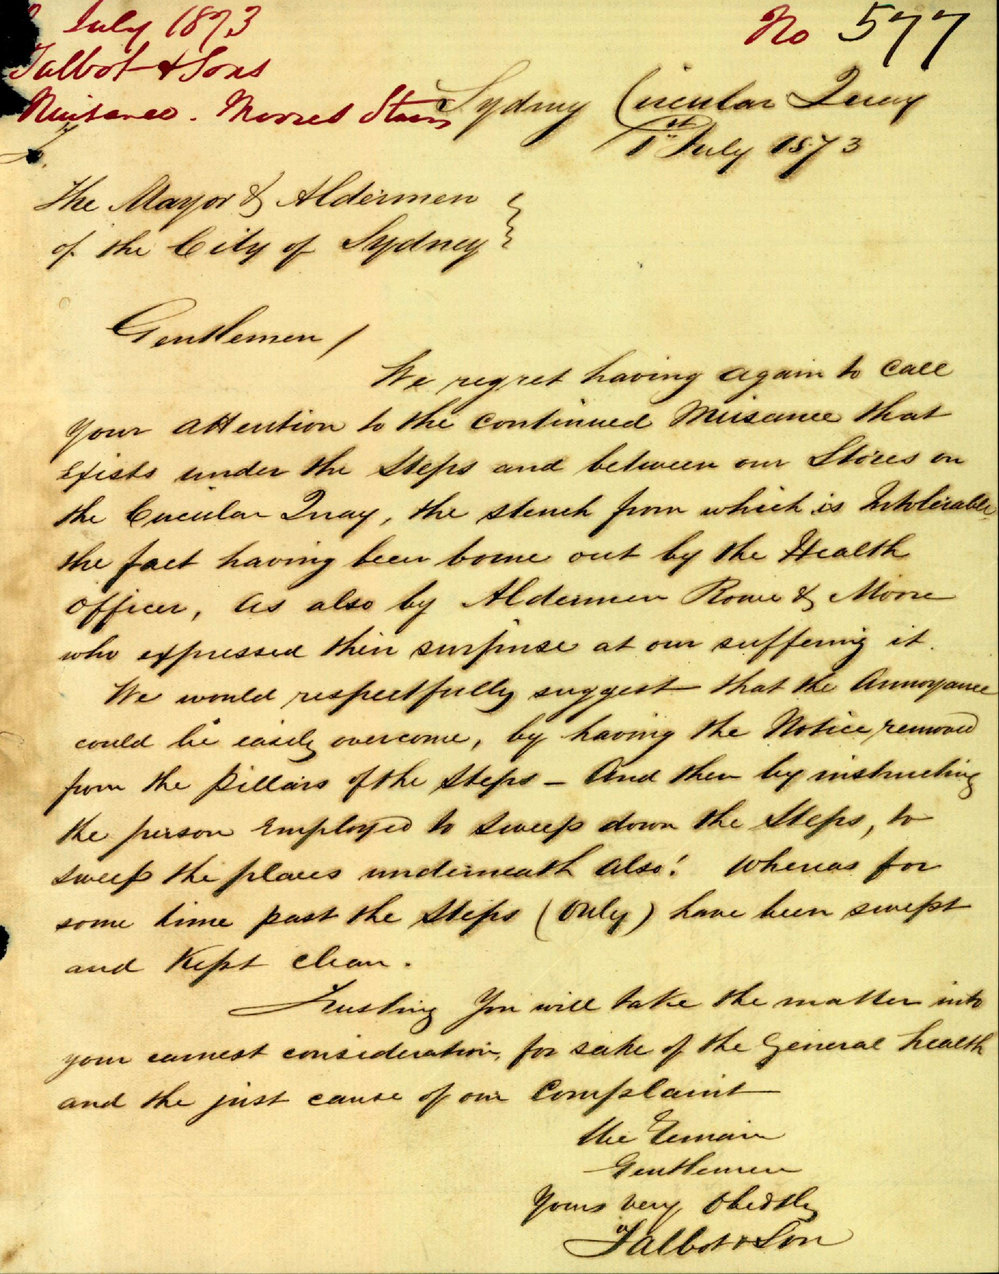 July 1873
No 577
Talbot & Sons
Nuisance. Moores Stairs
Sydney Circular Quay
1st July 1873
The Mayor & Aldermen
of the City of Sydney
Gentlemen /
We regret having again to call
your attention to the continued Nuisance that
exists under the Steps and between our Stores on
the Circular Quay, the stench from which is Intolerable
the fact having been borne out by the Health
Officer, as also by Aldermen Rowe & Moore
who expressed their surprise at our suffering it.
We would respectfully suggest that the Annoyance
could be easily overcome, by having the Notice removed
from the pillars of the Steps – And then by instructing
the person Employed to Sweep down the Steps, to
sweep the places underneath also! Whereas for
some time past the Steps (Only) have been swept
and Kept clean.
Trusting You will take the matter into
your earnest consideration, for sake of the General health
and the just cause of our Complaint
We Remain
Gentlemen
Yours very Obedtly
Talbot & Son